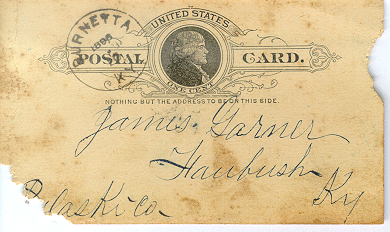 BURNETTA
1888
KY.
UNITED STATES
POSTAL CARD.
ONE CENT
NOTHING BUT THE ADDRESS TO BE ON THIS SIDE.
James Garner
Haubush
Pulaski Co Ky